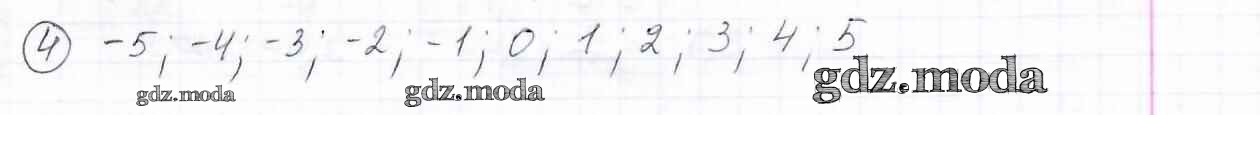 ④ -5; -4; -3; -2; -1; 0; 1; 2; 3; 4; 5
gdz.moda gdz.moda gdz.moda